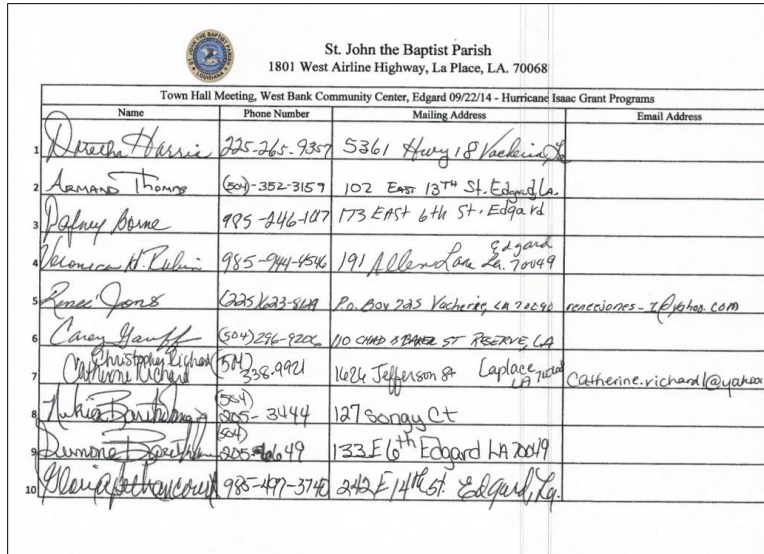 ST. JOHN THE BAPTIST PARISH
LOUISIANA
St. John the Baptist Parish
1801 West Airline Highway, La Place, LA. 70068
Town Hall Meeting, West Bank Community Center, Edgard 09/22/14 - Hurricane Isaac Grant Programs
Name Phone Number Mailing Address Email Address
1 Harris 225-265-9357 5361 Hwy 18 Vacherie, La
2 Armand Thomas (504)-352-3159 102 East 13TH St. Edgard, La.
3 Dafney Borne 985-246-1017 173 EAST 6th St. Edgard
4 Veronica H. Rubin 985-944-4546 191 Allen Lane Edgard La. 70049
5 Renee Jones (225) 623- P.O. Box 725 Vacherie, LA 70090 reneejones_
6 Carey (504) 296-9206 110 CHAD B BAKER ST RESERVE, LA
7 Christopher Richard
Catherine Richard (504) 338-9921 1626 Jefferson St Laplace LA Catherine.richard1@yahoo
8 (504) 205-3444 127 Songy Ct
9 (504) 133 E 6th Edgard LA 70049
10 Gloria Bethancourt 985-497-3740 242 E 14th St. Edgard, La.